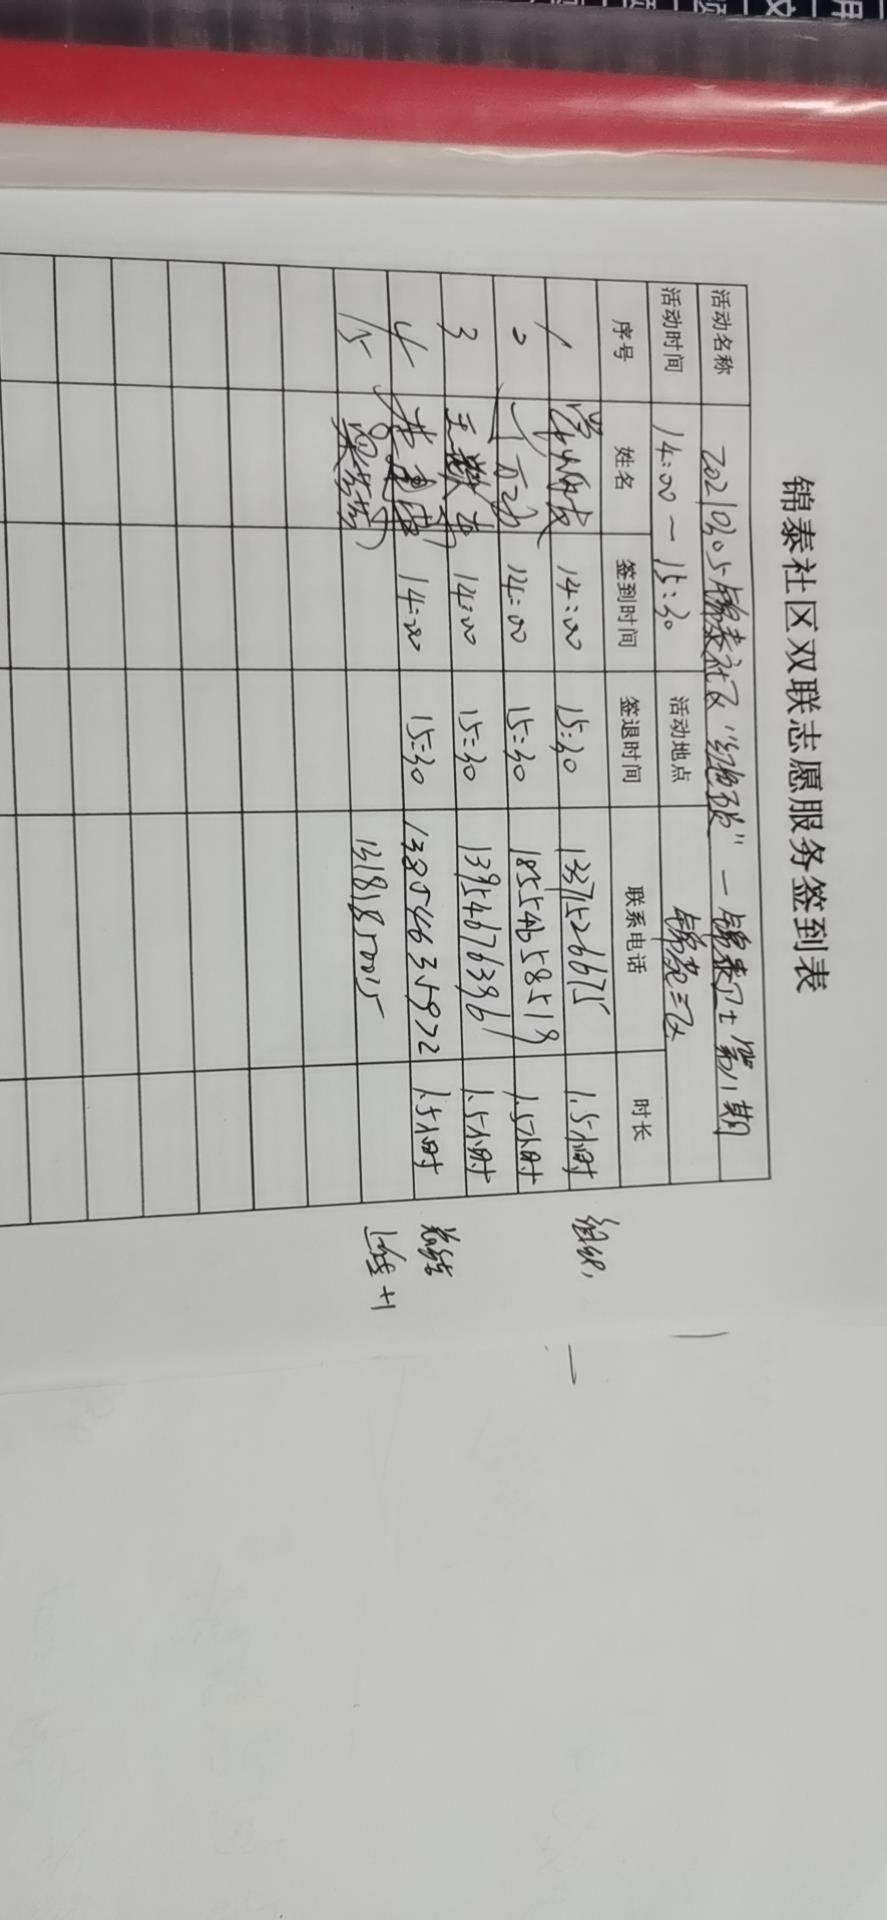 锦泰社区双联志愿服务签到表
活动名称 20210305锦泰社区“红色” — 锦泰卫士第八期
活动时间 14:00 — 15:30 活动地点 锦苑三区
序号 姓名 签到时间 签退时间 联系电话 时长
1 14:00 15:30 13371526675 1.5小时 组织
2 14:00 15:30 18554658519 1.5小时
3 王 14:00 15:30 13954676396 1.5小时
4 14:00 15:30 13854635972 1.5小时 总结
5 13181850025 上线+1